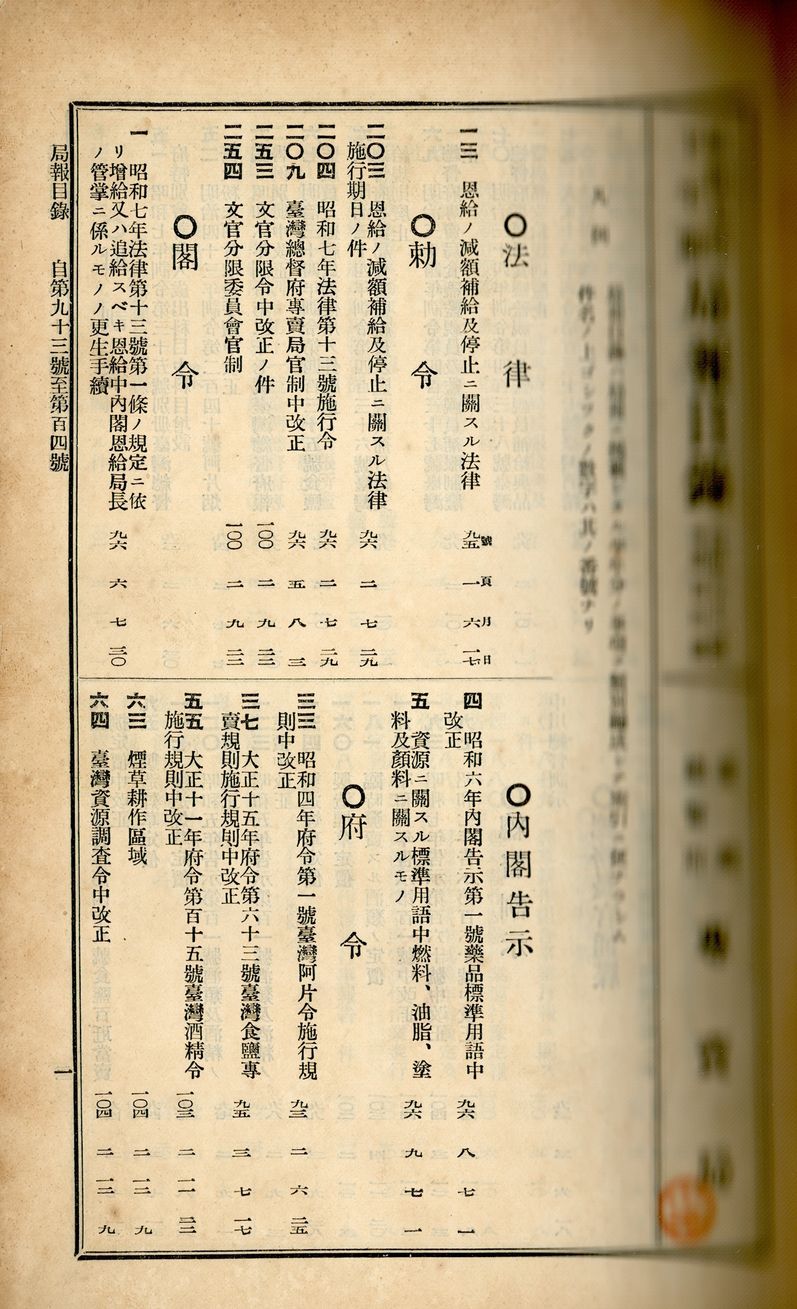 局報目錄
凡例
件名ノ上ゴシツクノ數字ハ其ノ番號ナリ
〇法律
號 頁 月 日
一三 恩給ノ減額補給及停止ニ關スル法律 九五 一 六 一七
〇勅令
二〇三 恩給ノ減額補給及停止ニ關スル法律
施行期日ノ件 九六 二 七 二九
二〇四 昭和七年法律第十三號施行令 九六 二 七 二九
二〇九 臺灣總督府專賣局官制中改正 九六 五 八 三
二五三 文官分限令中改正ノ件 一〇〇 二 九 二二
二五四 文官分限委員會官制 一〇〇 二 九 二二
〇閣令
一 昭和七年法律第十三號第一條ノ規定ニ依
リ增給又ハ追給スベキ恩給中內閣恩給局長
ノ管掌ニ係ルモノノ更生手續 九六 六 七 三〇
〇內閣告示
四 昭和六年內閣告示第一號藥品標準用語中
改正 九六 八 七 一
五 資源ニ關スル標準用語中燃料、油脂、塗
料及顏料ニ關スルモノ 九六 九 七 一
〇府令
三三 昭和四年府令第一號臺灣阿片令施行規
則中改正 九三 二 六 二五
三七 大正十五年府令第六十三號臺灣食鹽專
賣規則施行規則中改正 九五 三 七 一七
五五 大正十一年府令第百十五號臺灣酒精令
施行規則中改正 一〇三 二 一一 二二
六三 煙草耕作區域 一〇四 二 一二 九
六四 臺灣資源調査令中改正 一〇四 二 一二 九
局報目錄 自第九十三號至第百四號 一